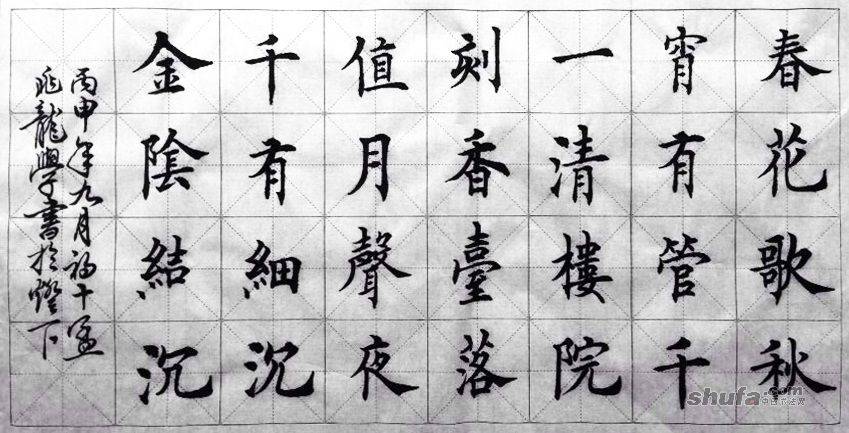 春宵一刻值千金
花有清香月有陰
歌管樓臺聲細結
秋千院落夜沉沉
丙申年九月初十
兆龍學書於燈下
shufa.com